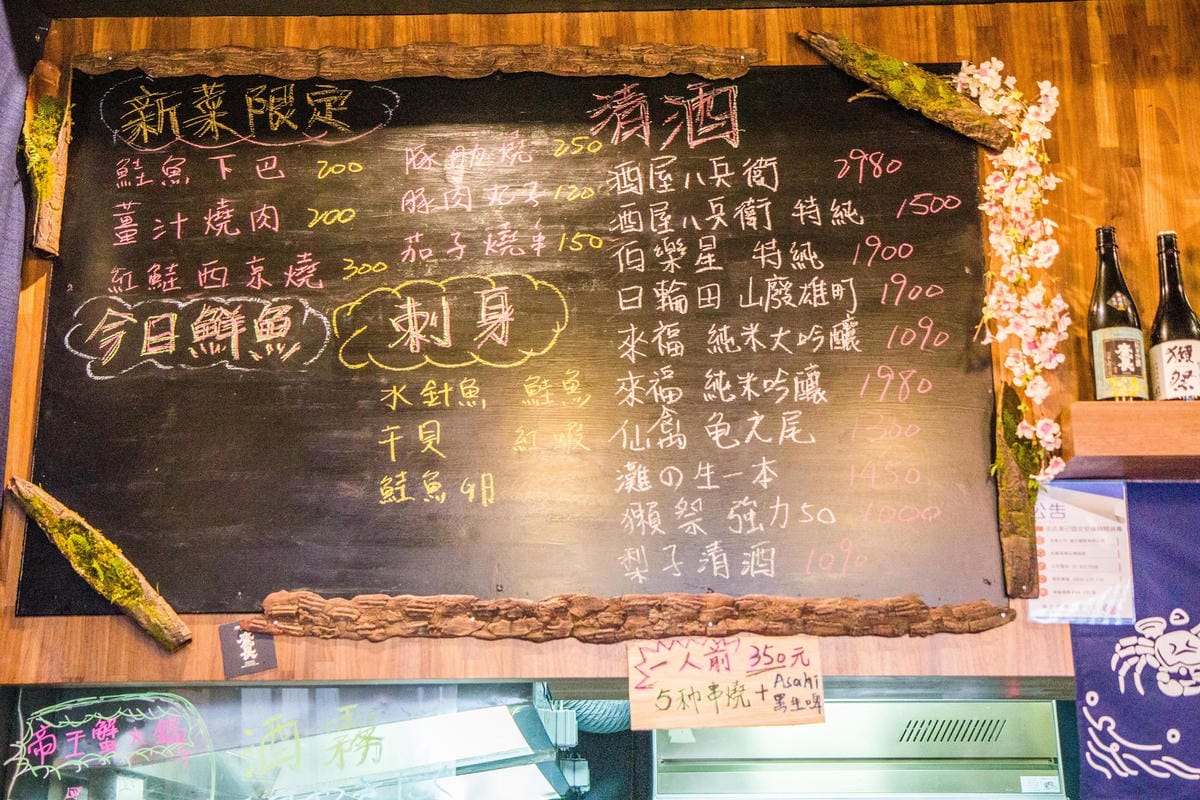 新菜限定
鮭魚下巴 200
薑汁燒肉 200
紅鮭西京燒 300
豚肋燒 250
豚肉丸子 120
茄子燒串 150
今日鮮魚
刺身
水針魚 鮭魚
干貝 紅蝦
鮭魚卵
清酒
酒屋八兵衛 2980
酒屋八兵衛 特純 1500
伯樂星 特純 1900
日輪田 山廢雄町 1900
來福 純米大吟釀 1090
來福 純米吟釀 1980
仙禽 龟之尾 1300
灘の生一本 1450
獺祭 強力50 1000
梨子清酒 1090
獺祭
公告
一人前 350元
5種串燒 + Asahi
生啤
帝王蟹
酒霧